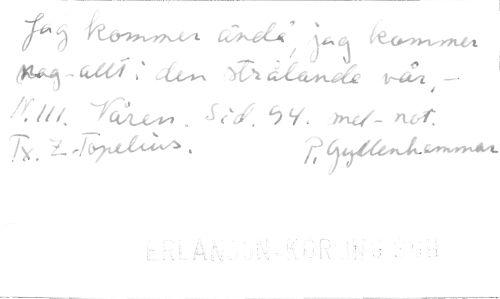 Jag kommer ändå, jag kommer
nog-allt i den strålande vår, –
N. III. Våren. Sid. 94. mel-not.
Tx. Z-Topelius. P. Gyllenhammar